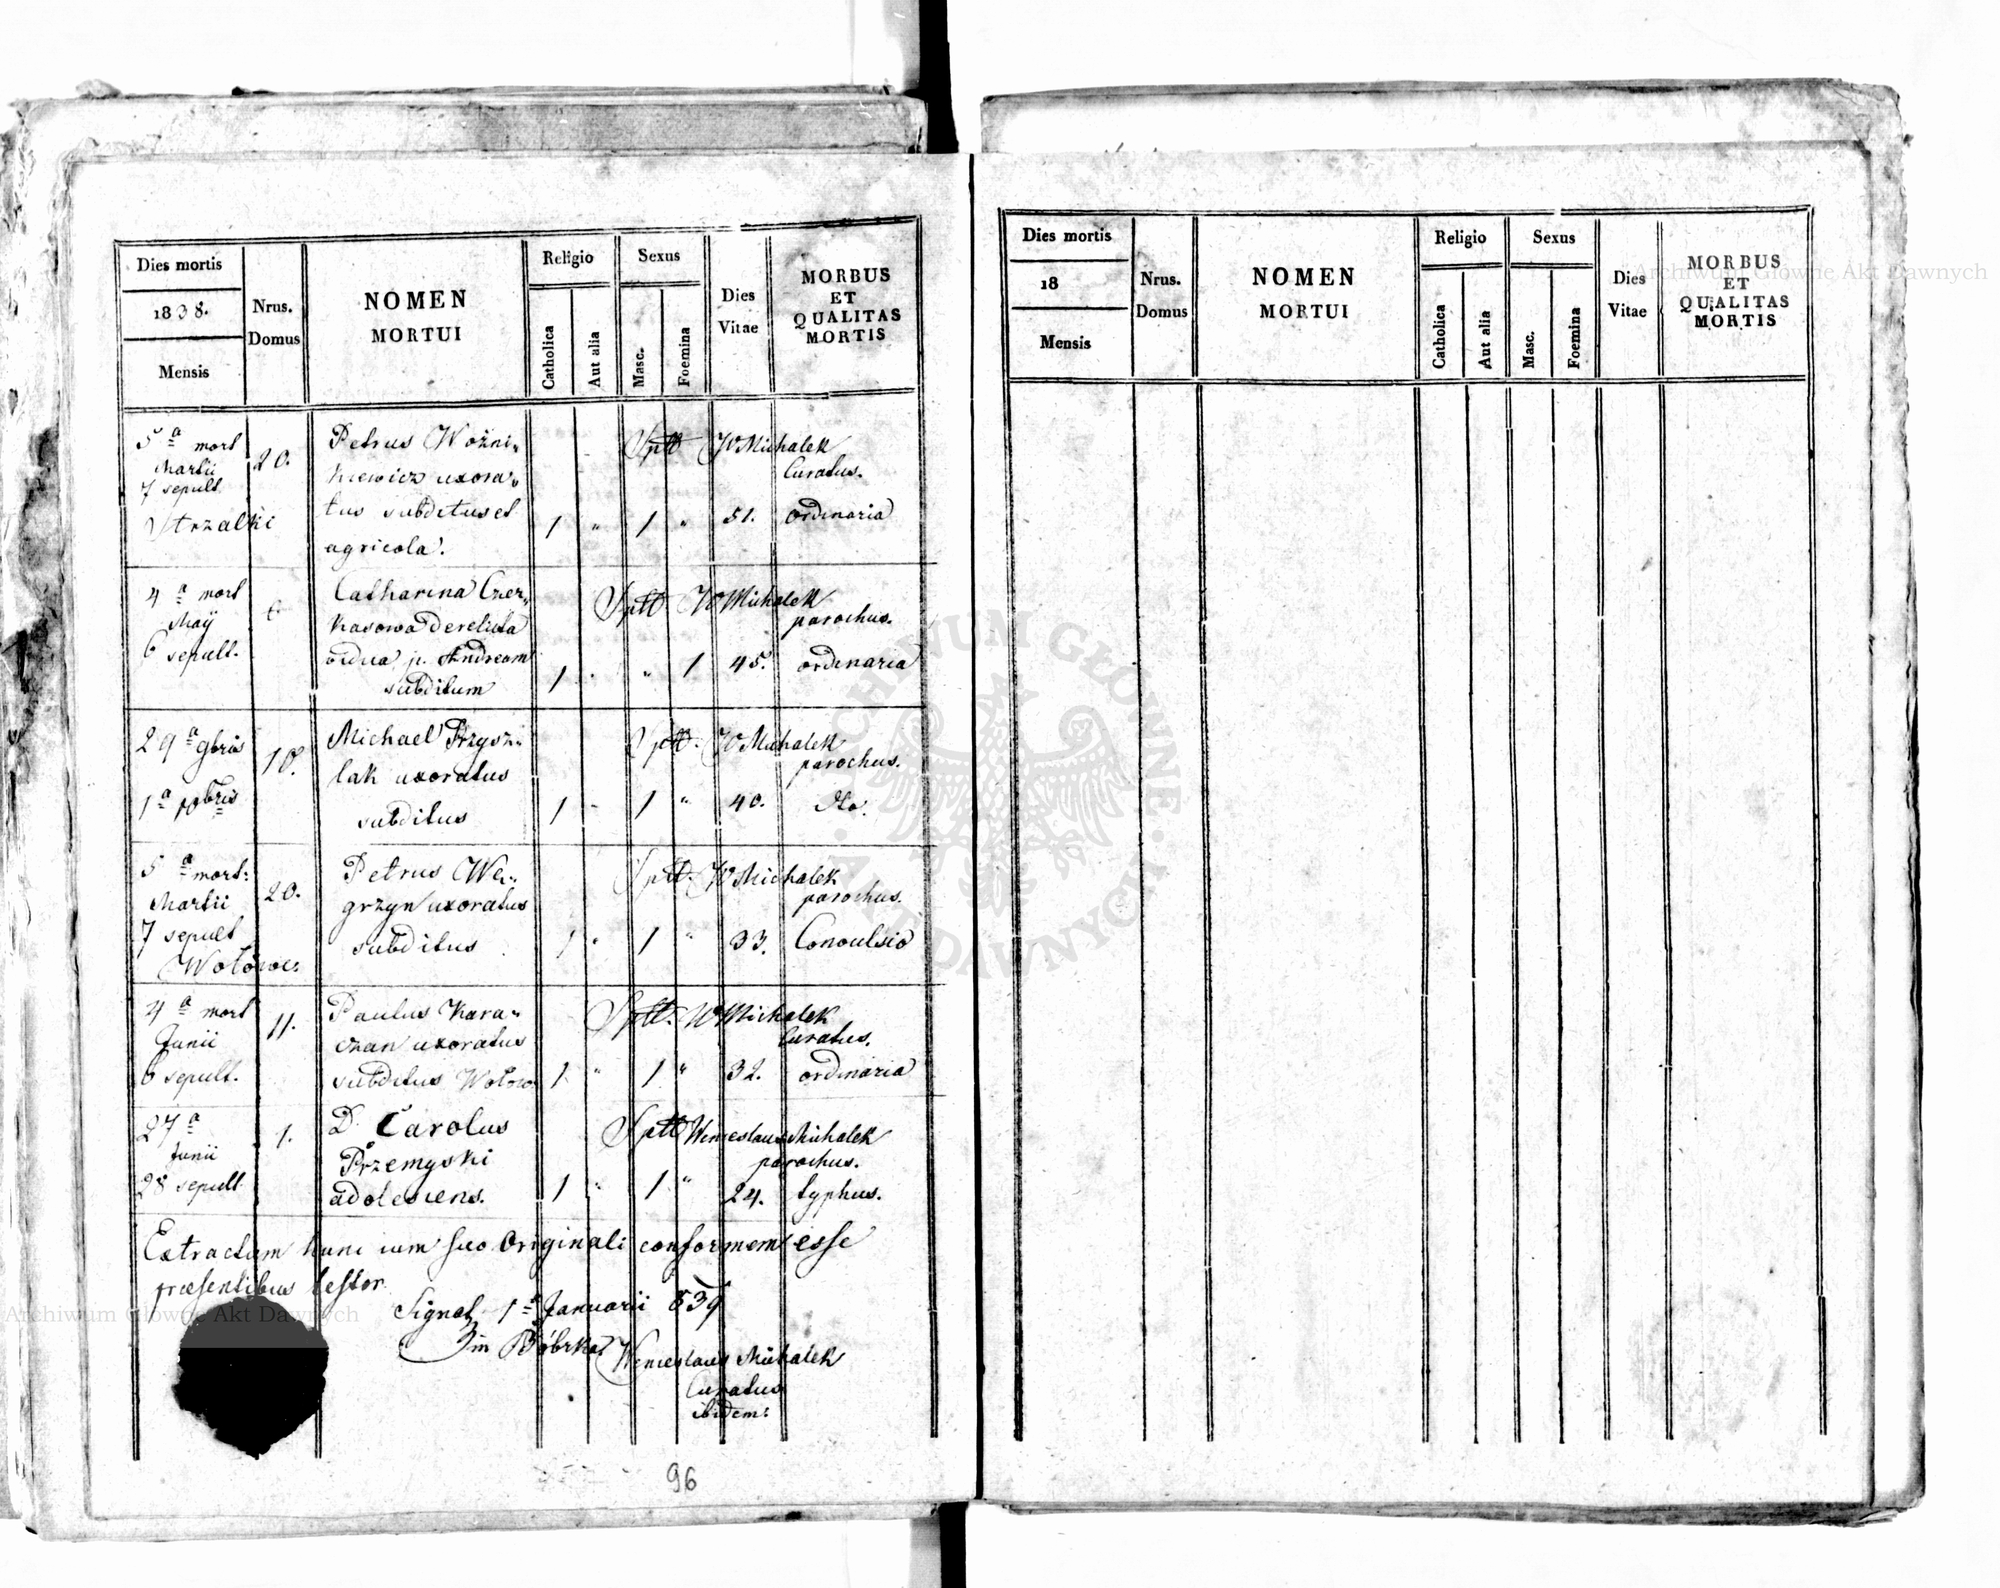 Dies mortis
1838.
Mensis
Nrus.
Domus
NOMEN
MORTUI
Religio
Catholica
Aut alia
Sexus
Masc.
Foemina
Dies
Vitae
MORBUS
ET
QUALITAS
MORTIS
5ª mort
Martii
7 sepult
Strzałki
20.
Petrus Wożni-
kiewicz uxora-
tus subditus et
agricola.
Sptt W Michalek
Curatus.
1 " 1 " 51. ordinaria
4ª mort
Maÿ
6 sepult.
Catharina Czer-
kasowa derelicta
vidua p. Andream
subditum
Sptt W Michalek
parochus.
1 " " 1 45. ordinaria
29ª 9bris
1ª 10bris
10.
Michael Przysz-
lak uxoratus
subditus
Sptt. W Michalek
parochus.
1 " 1 " 40. dto.
5ª mort:
Martii
7 sepult
Wołowe.
20.
Petrus We-
grzyn uxoratus
subditus
Sptt. W Michalek
parochus.
1 " 1 " 33. Convulsio
4ª mort
Junii
6 sepult.
11.
Paulus Kara-
czan uxoratus
subditus Wołow
Sptt. W Michalek
Curatus.
1 " 1 " 32. ordinaria
27ª
Junii
28 sepult
1.
D. Carolus
Przemyski
adolescens.
Sptt Wenceslaus Michalek
parochus.
1 " 1 " 24. typhus.
Extractum hunc cum suo Originali conformem esse
præsentibus testor.
Signat 1ª Januarii 839
in Bóbrka
Wenceslaus Michalek
Curatus
ibidem.
96
Dies mortis
18
Mensis
Nrus.
Domus
NOMEN
MORTUI
Religio
Catholica
Aut alia
Sexus
Masc.
Foemina
Dies
Vitae
MORBUS
ET
QUALITAS
MORTIS
Archiwum Główne Akt Dawnych
Archiwum Główne Akt Dawnych
ARCHIWUM GŁÓWNE · AKT DAWNYCH ·